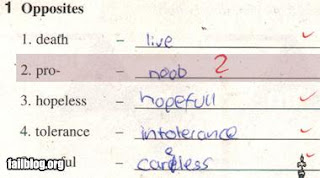 1 Opposites
1. death – live
2. pro- – noob ?
3. hopeless – hopefull
4. tolerance – intolerance
ful – careless
failblog.org